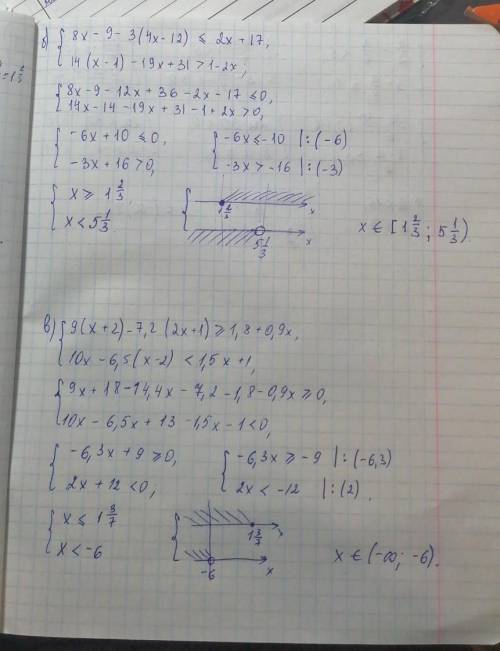 б) { 8x - 9 - 3(4x - 12) ≤ 2x + 17,
14(x - 1) - 19x + 31 > 1 - 2x;
{ 8x - 9 - 12x + 36 - 2x - 17 ≤ 0,
14x - 14 - 19x + 31 - 1 + 2x > 0,
{ -6x + 10 ≤ 0, { -6x ≤ -10 | : (-6)
-3x + 16 > 0, -3x > -16 | : (-3)
{ x ≥ 1 2/3
x < 5 1/3
1 2/3 x
5 1/3 x
x ∈ [1 2/3 ; 5 1/3).
в) { 9(x + 2) - 7,2 (2x + 1) ≥ 1,8 + 0,9x,
10x - 6,5(x - 2) < 1,5x + 1,
{ 9x + 18 - 14,4x - 7,2 - 1,8 - 0,9x ≥ 0,
10x - 6,5x + 13 - 1,5x - 1 < 0,
{ -6,3x + 9 ≥ 0, { -6,3x ≥ -9 | : (-6,3)
2x + 12 < 0, 2x < -12 | : (2).
{ x ≤ 1 3/7
x < -6
1 3/7 x
-6 x
x ∈ (-∞; -6).